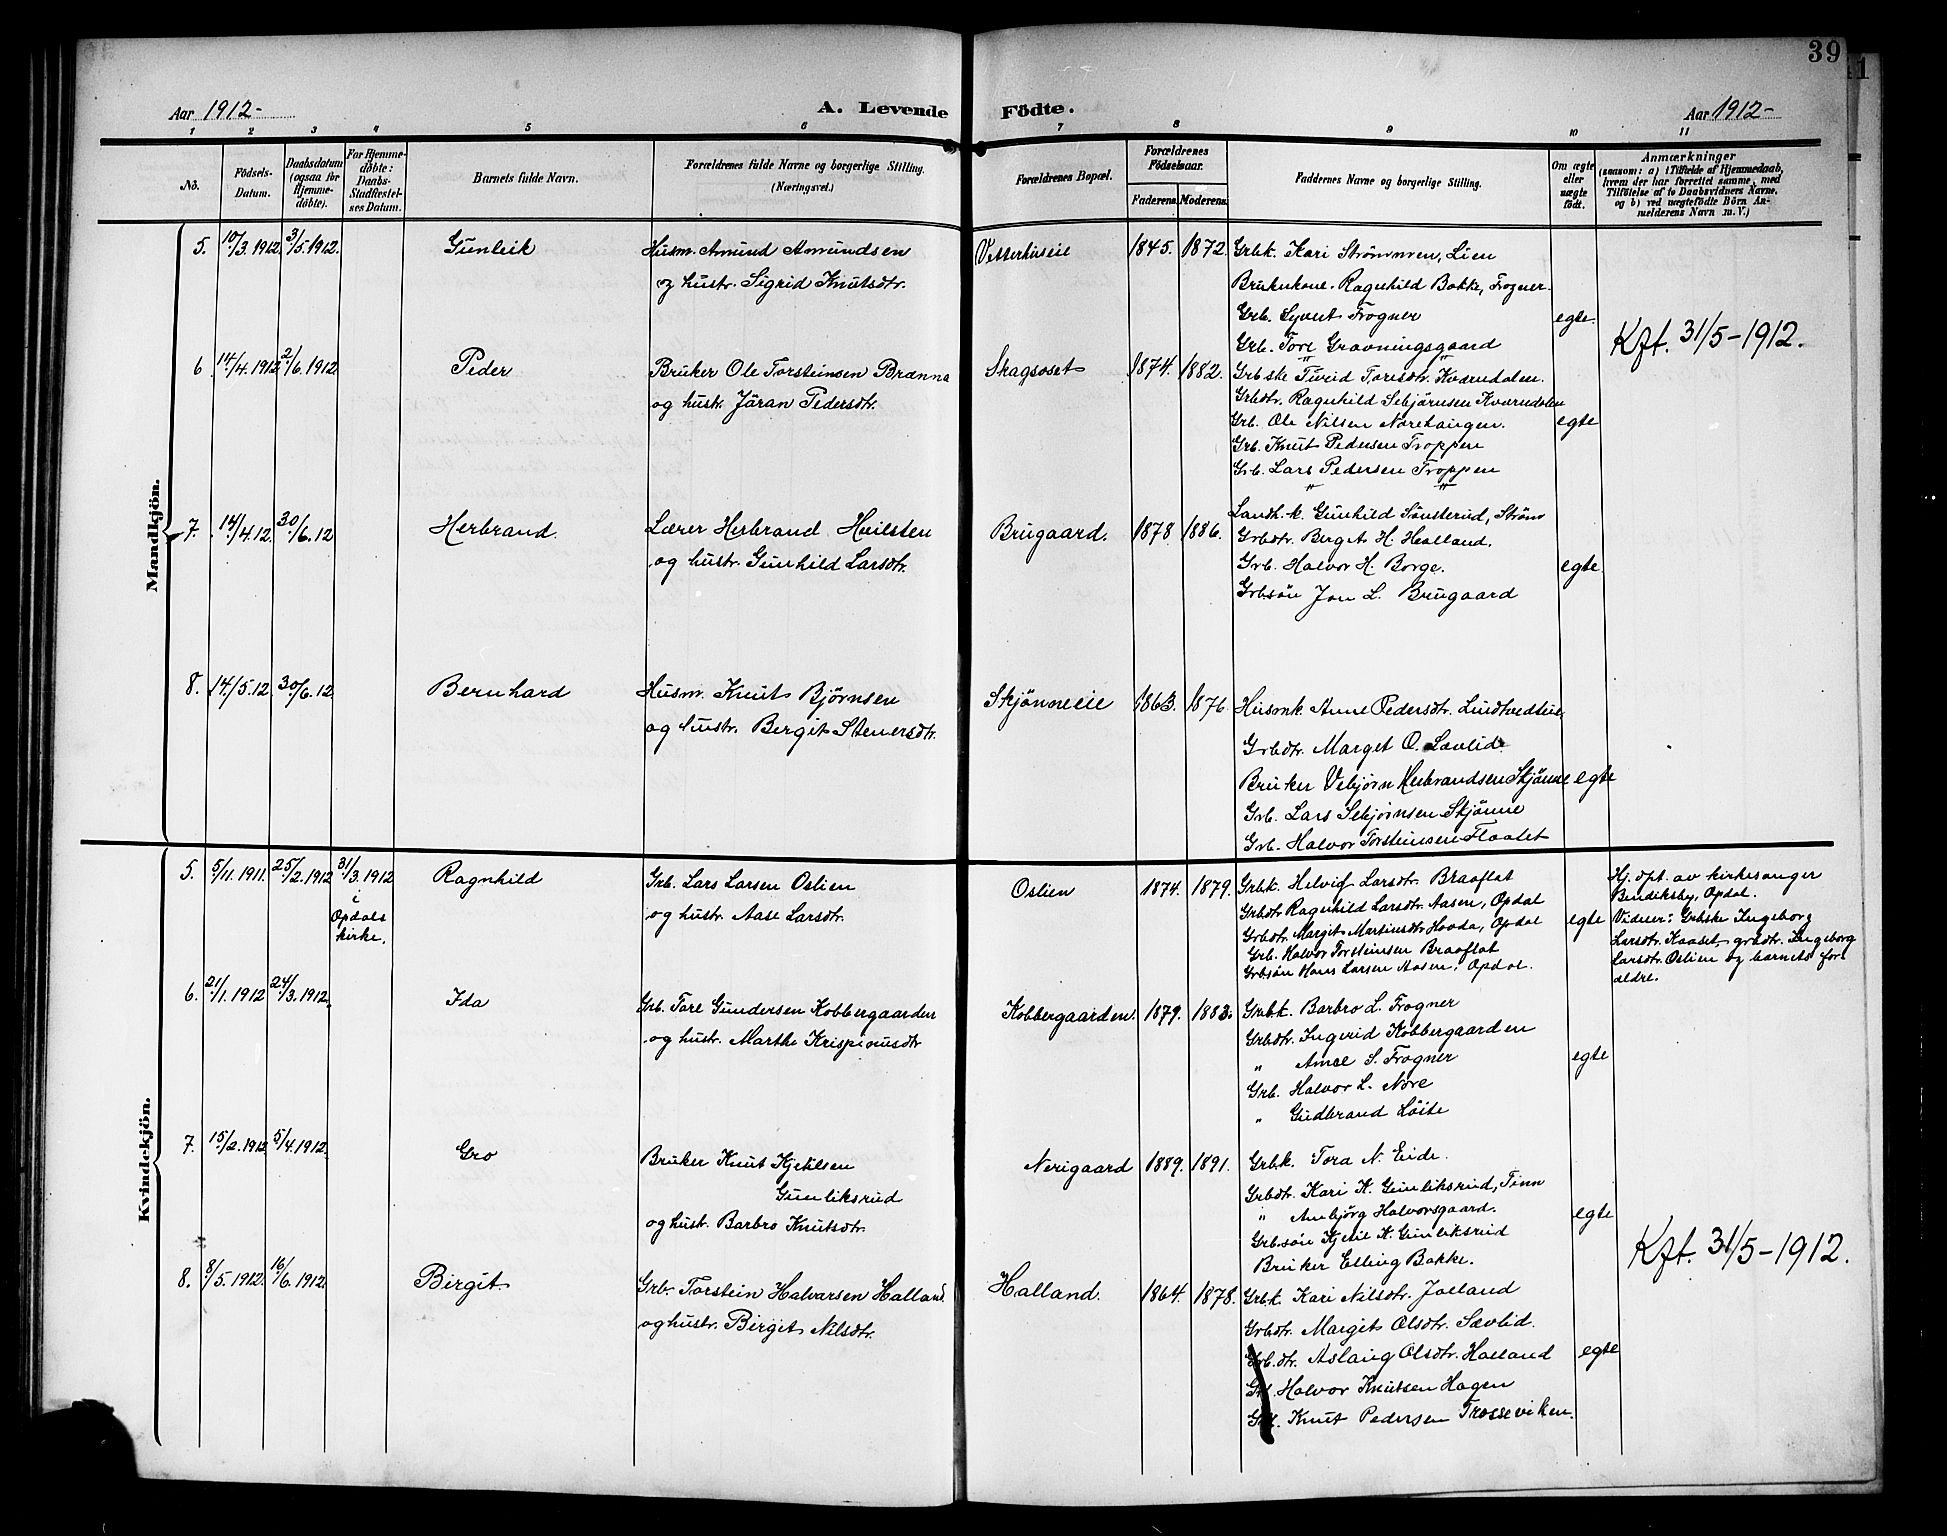 39
Aar 1912-
A. Levende Födte.
Aar 1912-
1 2 3 4 5 6 7 8 9 10 11
No.
Födsels-Datum.
Daabsdatum (ogsaa for Hjemme-döbte).
For Hjemme-döbte: Daabs-Stadfæstel-ses Datum.
Barnets fulde Navn.
Forældrenes fulde Navne og borgerlige Stilling.
(Næringsvei.)
Forældrenes Bopæl.
Forældrenes Födselsaar.
Faderens. Moderens.
Faddernes Navne og borgerlige Stilling.
Om ægte eller uægte födt.
Anmærkninger
(saasom: a) i Tilfælde af Hjemmedaab,
hvem der har forrettet samme, med
Tilföielse af to Daabsvidners Navne,
og b) ved uægtefödte Börn An-
melderens Navn m. V.)
Mandkjön.
5. 10/3.1912 31/5.1912. Gunleik
Husm. Amund Amundsen
og hustr. Sigrid Knutsdtr.
Vesterhuseie 1845. 1872.
Grbk. Kari Strømmen, Lien
Brukerkone. Ragnhild Bakke, Frogner.
Grb. Syvert Frogner
Grb. Tore Gravningsgaard
egte.
Kft. 31/5-1912.
6. 14/4.1912 2/6.1912 Peder
Bruker Ole Torsteinsen Brænna
og hustr. Jöran Pedersdtr.
Skagsoset 1874. 1882.
Grbske Turid Toresdtr. Kværndalen.
Grbdtr. Ragnhild Sebjörnsen Kværndalen
Grb. Ole Nilsen Noretangen.
Grb. Knut Pedersen Troppen
Grb. Lars Pedersen Troppen
egte
7. 14/4.12. 30/6.12 Herbrand.
Lærer Herbrand Heilsten
og hustr. Gunhild Larsdtr.
Brugaard. 1878 1886.
Landh.k. Gunhild Sönsterud, Strøm
Grbdtr. Berget H. Halland.
Grb. Halvor H. Borge.
Grbsön Jon L. Brugaard
egte.
8. 14/5.12 30/6.12. Bernhard
Husm. Knut Bjørnsen
og hustr. Bergit Stenersdtr.
Skjønneeie 1863. 1876.
Husmk. Anne Pedersdtr.
Grbdtr. Marget O. Sævlid.
Bruker Vebjørn Herbrandsen Skjönne
Grb. Lars Sebjørnsen Skjönne
Grb. Halvor Torsteinsen Flaatet
egte
Kvindekjön.
5. 5/11.1911. 25/2.1912 31/3.1912 i Opdals kirke. Ragnhild
Grb. Lars Larsen Oslien
og hustr. Aase Larsdtr.
Oslien 1874. 1879.
Grbk. Helvig Larsdtr. Braaflat
Grbdtr. Ragnhild Larsdtr. Aasen, Opdal
Grbdtr. Margit Martinsdtr Hovda, Opdal
Grb. Halvor Torsteinsen Braaflat
Grbsön Hans Larsen Aasen, Opdal.
egte
Hj. dpt. av kirkesanger
Bendiksby, Opdal.
Vidner: Grbske Ingeborg
Larsdtr. Kaaset, grbdtr. Ingeborg
Larsdtr. Oslien og barnets for
ældre.
6. 21/1.1912 24/3.1912. Ida
Grb. Tore Gundersen Kobbergaarden
og hustr. Marthe Krispinusdtr
Kobbergaarden. 1879. 1883.
Grbk. Barbro L. Frogner
Grbdtr. Ingerid Kobbergaarden
" Anne S. Frogner
Grb. Halvor L. Nore
" Gudbrand Löite
egte
7. 15/2.1912. 5/4.1912. Gro
Bruker Knut Kjetilsen
Gunleiksrud
og hustr. Barbro Knutsdtr.
Nerigaard 1889. 1891.
Grbk. Tora N. Eide.
Grbdtr. Kari K. Gunleiksrud, Tinn
" Anbjörg Halvorsgaard.
Grbsön Kjetil K. Gunleiksrud
Bruker Elling Bakke.
egte
Kft. 31/5-1912.
8. 8/5.1912. 16/6.1912. Birgit.
Grb. Torstein Halvorsen Halland
og hustr. Birgit Nilsdtr.
Halland. 1864. 1878.
Grbk. Kari Nilsdtr. Jolland
Grbdtr. Margit Olsdtr. Sævlid.
Grb.dtr. Aslaug Olsdtr. Halland
Grb. Halvor Knutsen Hagen
Grb. Knut Pedersen Trosseviken.
egte